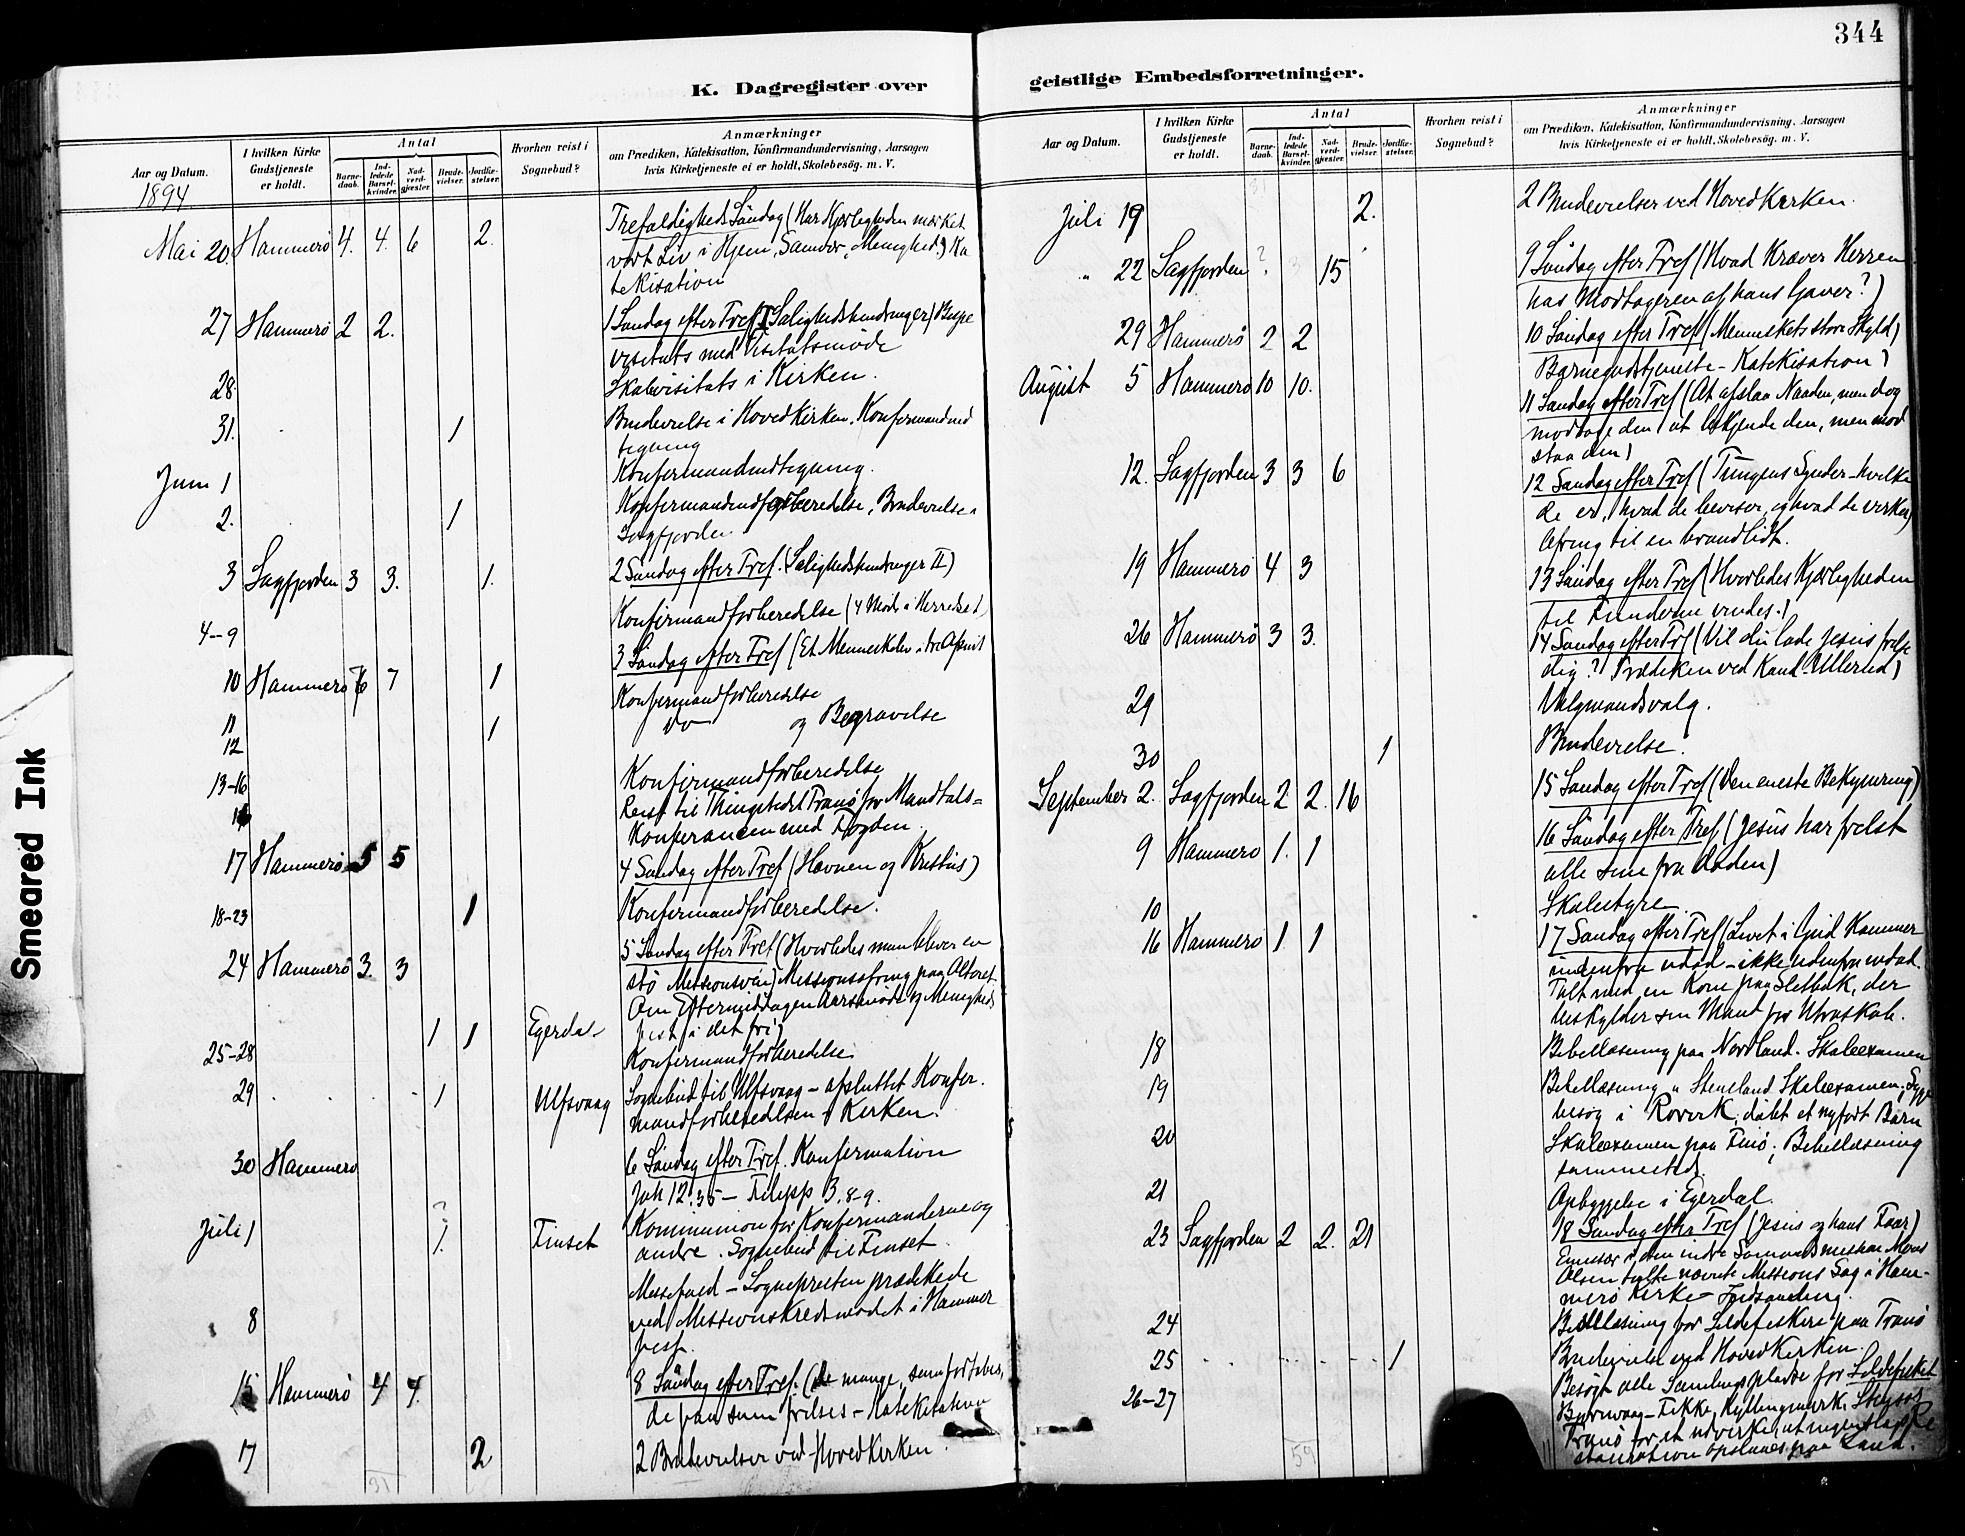 344
K. Dagregister over
geistlige Embedsforretninger.
Aar og Datum.
I hvilken Kirke Gudstjeneste er holdt.
Antal
Barnedaab.
Indledede Barselkvinder.
Nadverdgjæster.
Brudevielser.
Jordfæstelser.
Hvorhen reist i Sognebud?
Anmærkninger
om Prædiken, Katekisation, Konfirmandundervisning, Aarsagen
hvis Kirketjeneste ei er holdt, Skolebesøg. m. V.
1894
Mai 20. Hammerø 4. 4. 6 2. Trefaldigheds Søndag (Har Kjærligheden mærket
vort Liv i Hjem, Samvær, Menighed?) Ka
tekisation
27 Hammerø 2 2. 1 Søndag efter Tref (I Salighedshindringer) Bispe
visitats med Visitatsmøde
28 Skolevisitats i Kirken.
31. 1 Brudevielse i Hovedkirken. Konfirmandind
tegning
Juni 1 Konfirmandindtegning.
2. 1 Konfirmandforberedelse. Brudevielse i
Sagfjorden
3 Sagfjorden 3 3. 1. 2 Søndag efter Tref. (Salighedshindringer II)
4-9 Konfirmandforberedelse (4 Møde i Herredst)
3 Søndag efter Tref (Et Menneskelev i tre Afsnit
10 Hammerø 7 1
11 Konfirmandforberedelse
12 1 do og Begravelse
13-16 Konfirmandforberedelse
16 Reist til Thingstedet Tranø for Mandtals=
Konferancen med Fogden.
17 Hammerø 5 5 4 Søndag efter Tref (Havnen og Kristus)
18-23 1 Konfirmandforberedelse.
24 Hammerø 3. 3 5 Søndag efter Tref (Hvorledes man bliver en
stø Missionsven) Missionsofring paa Alteret.
Om Eftermiddagen Aarsmøde og Menigheds
fest (i det fri)
25-28 1 1 Egerda- Konfirmandforberedelse
29 1 Ulfsvaag Sognebud til Ulfsvaag - afsluttet Konfir.
mandforberedelsen i Kirken.
30 Hammerø 6 Søndag efter Tref. Konfirmation
Joh 12.35 - Filipp 3.8-9.
Juli 1 ? 1. Finset Kommunion for Konfirmanderne og
andre. Sognebud til Finset.
8 Messefald - Sognepresten prædikede
ved Missionskredsmødet i Hammer
fest.
15 Hammerø 4 4. 8 Søndag efter Tref. (De mange, som fortabes,
de faa som frelses - Katekisation
17 2 2 Brudevielser ved Hovedkirken.
31
Aar og Datum.
I hvilken Kirke Gudstjeneste er holdt.
Antal
Barnedaab.
Indledede Barselkvinder.
Nadverdgjæster.
Brudevielser.
Jordfæstelser.
Hvorhen reist i Sognebud?
Anmærkninger
om Prædiken, Katekisation, Konfirmandundervisning, Aarsagen
hvis Kirketjeneste ei er holdt, Skolebesøg. m. V.
31
Juli 19 2. 2 Brudevielser ved Hovedkirken.
" 22 Sagfjorden ? 3 15 9 Søndag efter Tref (Hvad kræver Herren
hos Modtageren af hans Gaver?)
29 Hammerø 2 2 10 Søndag efter Tref (Menneskets store Skyld)
Barnegudstjeneste - Katekisation)
August 5 Hammerø 10 10. 11 Søndag efter Tref (At afslaa Naaden, men dog
modtage den, at bekjende den, men mod
staa den)
12. Sagfjorden 3 3 6 12 Søndag efter Tref (Tungens Synder - hvilke
de er, hvad de beviser, og hvad de virker)
Ofring til en brandlidt.
19 Hammerø 4 3 13 Søndag efter Tref (Hvorledes Kjærligheden
til Fienderne vindes.)
26 Hammerø 3 3. 14 Søndag efter Tref (Vil du lade Jesus frelse
dig? Prædiken ved Kand. Ullerud)
29 Valgmandsvalg.
30 1 Brudevielse.
September 2. Sagfjorden 2 2. 16 15 Søndag efter Tref (Den eneste Bekymring)
9 Hammerø 1. 1 16 Søndag efter Tref (Jesus har frelst
alle sine fra Døden)
10 Skolestyre.
16 Hammerø 1. 1 17 Søndag efter Tref (Livet i Gud kommer
indenfra udad - ikke udenfra indad.
Talt med en Kone paa Sletbak, der
beskylder sin Mand for Utroskab.
18 Bibellæsning paa Nordland. Skoleexamen
19 Bibellæsning Steneland Skoleexamen; Syge
besøg i Rørvik, døbt et nyfødt Barn
20 Skoleexamen paa Finø; Bibellæsning
sammesteds.
21 Opbyggelse i Egerdal.
23 Sagfjorden 2 2. 21 18 Søndag efter Tref (Jesus og hans Faar)
Emissær i den indre Sømandsmission Mons
Olsen talte nævnte Missions Sag i Ham-
merø Kirke
24 Bibellæsning for Sildefiskere paa Tranø
25 1 Brudevielse ved Hovedkirken.
26-27 Besøgt alle Samlingspladse for Sildefisket
Tranø for at udvirke, at ingen Re
stauration opslaaes paa Land.
59
Smeared Ink